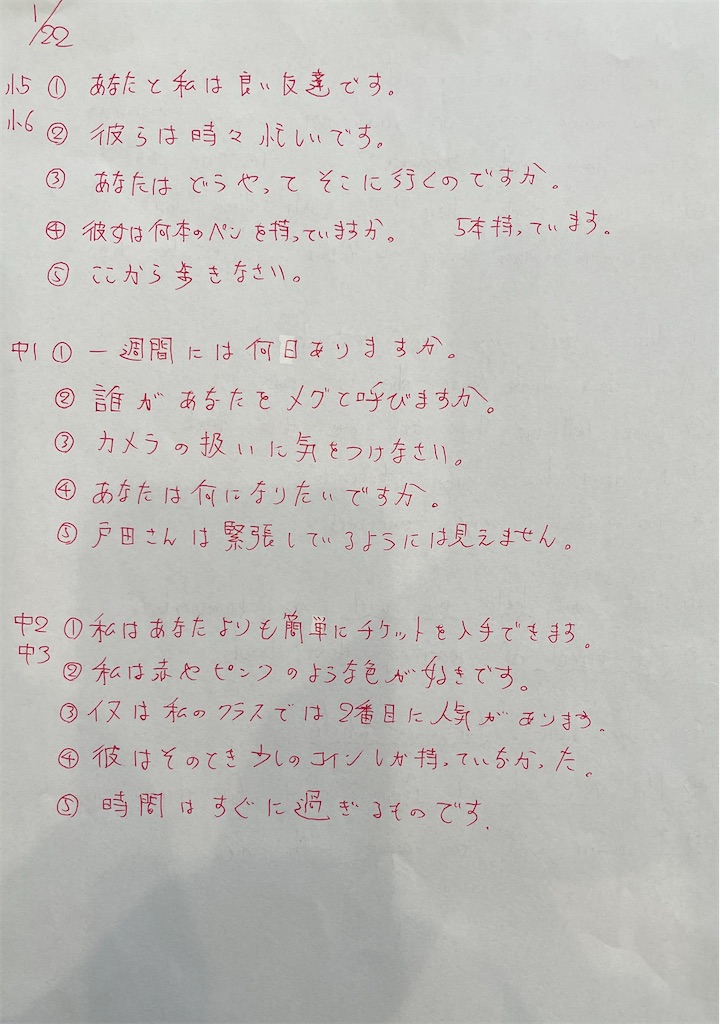 1/22
小5 ① あなたと私は良い友達です。
小6
② 彼らは時々忙しいです。
③ あなたはどうやってそこに行くのですか。
④ 彼女は何本のペンを持っていますか。 5本持っています。
⑤ ここから歩きなさい。
中1 ① 一週間には何日ありますか。
② 誰があなたをメグと呼びますか。
③ カメラの扱いに気をつけなさい。
④ あなたは何になりたいですか。
⑤ 戸田さんは緊張しているようには見えません。
中2 ① 私はあなたよりも簡単にチケットを入手できます。
中3
② 私は赤やピンクのような色が好きです。
③ イヌは私のクラスでは2番目に人気があります。
④ 彼はそのとき少しのコインしか持っていなかった。
⑤ 時間はすぐに過ぎるものです.